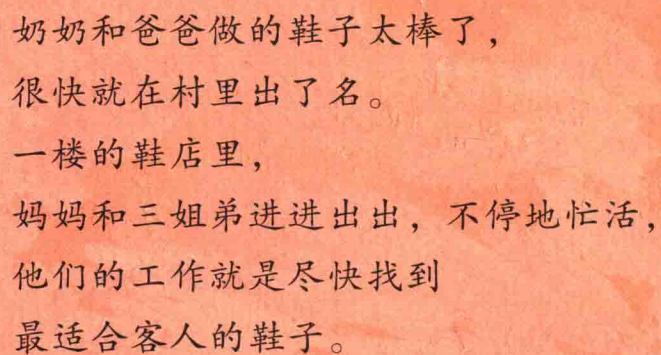 奶奶和爸爸做的鞋子太棒了，
很快就在村里出了名。
一楼的鞋店里，
妈妈和三姐弟进进出出，不停地忙活，
他们的工作就是尽快找到
最适合客人的鞋子。